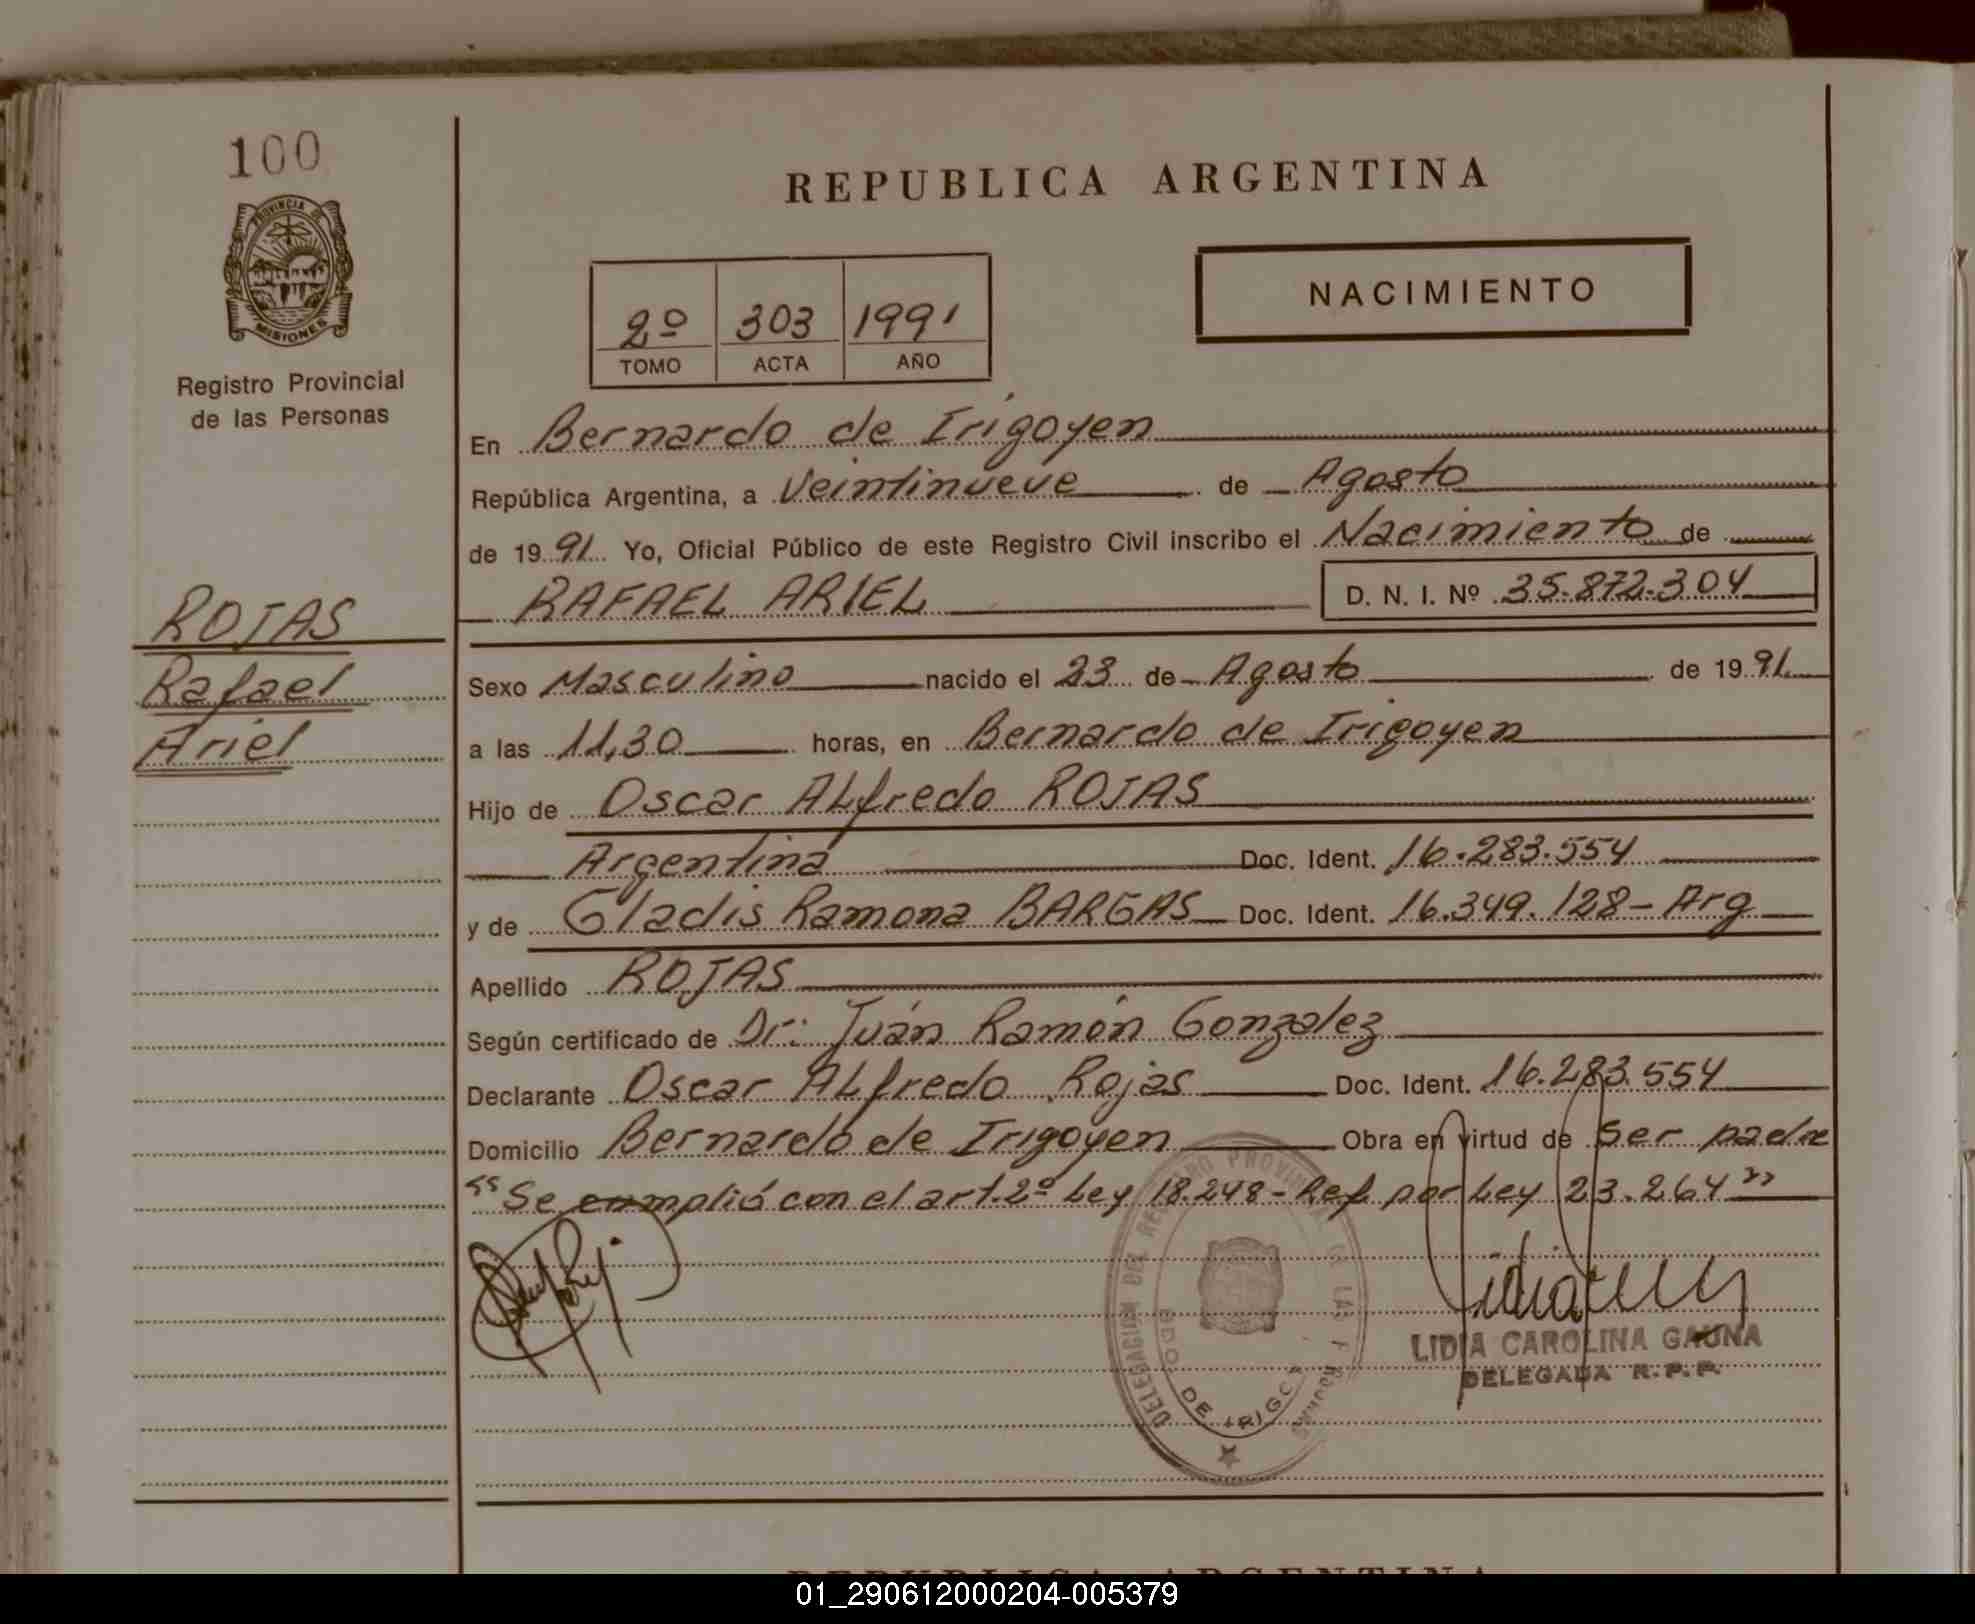 100
PROVINCIA DE
MISIONES
Registro Provincial
de las Personas
ROJAS
Rafael
Ariel
REPUBLICA ARGENTINA
2º 303 1991
TOMO ACTA AÑO
NACIMIENTO
En Bernardo de Irigoyen
República Argentina, a Veintinueve de Agosto
de 1991 Yo, Oficial Público de este Registro Civil inscribo el Nacimiento de
RAFAEL ARIEL D. N. I. Nº 35.872.304
Sexo Masculino nacido el 23 de Agosto de 1991
a las 11,30 horas, en Bernardo de Irigoyen
Hijo de Oscar ALfredo ROJAS
Argentina Doc. Ident. 16.283.554
y de Gladis Ramona BARGAS Doc. Ident. 16.349.128 - Arg
Apellido ROJAS
Según certificado de Dr: Juán Ramón Gonzalez
Declarante Oscar ALfredo Rojas Doc. Ident. 16.283.554
Domicilio Bernardo de Irigoyen Obra en virtud de Ser padre
"Se cumplió con el art. 2º Ley 18.248 - Ref por Ley 23.264"
DELEGACION DEL REGISTRO PROVINCIAL DE LAS
BDO. DE IRIGOYEN
LIDIA CAROLINA GAUNA
DELEGADA R.P.P.
REPUBLICA ARGENTINA
01_290612000204-005379